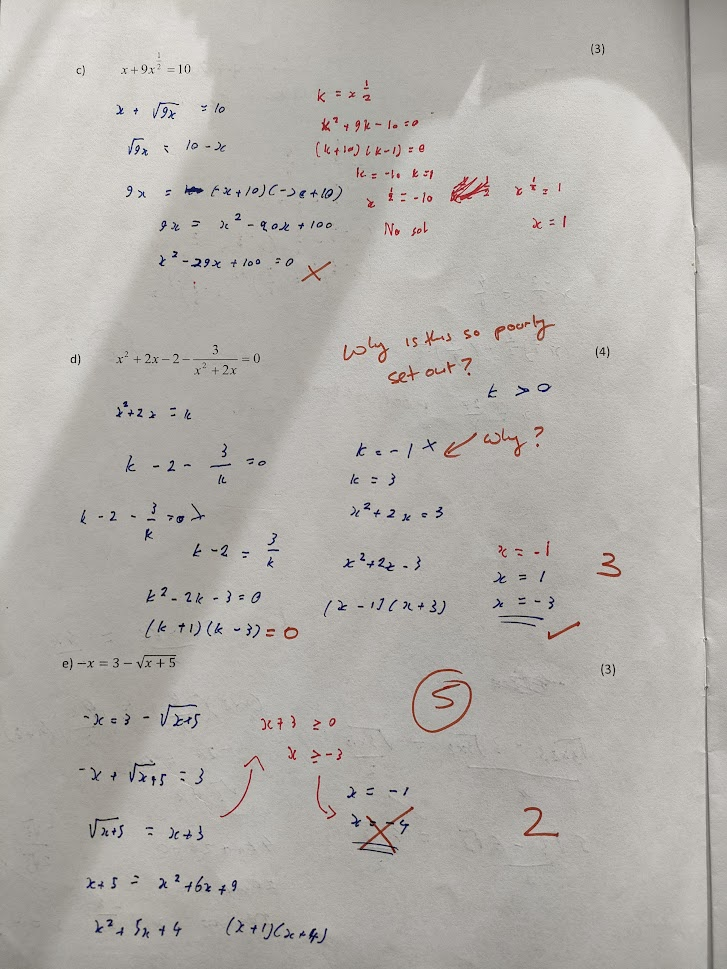 (3)
c) x + 9x^{1/2} = 10
x + √9x = 10
√9x = 10 - x
9x = (-x+10)(-x+10)
9x = x² - 20x + 100
x² - 29x + 100 = 0 ✗
k = x^{1/2}
k² + 9k - 10 = 0
(k+10)(k-1) = 0
k = -10 k = 1
x^{1/2} = -10 x^{1/2} = 1
No sol x = 1
Why is this so poorly
set out?
d) x² + 2x - 2 - 3/(x² + 2x) = 0 (4)
x² + 2x = k
k - 2 - 3/k = 0
k - 2 - 3/k = 0
k - 2 = 3/k
k² - 2k - 3 = 0
(k+1)(k-3) = 0
k > 0
k = -1 ✗ ← Why?
k = 3
x² + 2x = 3
x² + 2x - 3
(x-1)(x+3)
x = -1
x = 1
x = -3 ✓
3
e) -x = 3 - √(x+5) (3)
-x = 3 - √(x+5)
-x + √(x+5) = 3
√(x+5) = x+3
x+5 = x² + 6x + 9
x² + 5x + 4 (x+1)(x+4)
x+3 ≥ 0
x ≥ -3
x = -1
x = -4
5
2